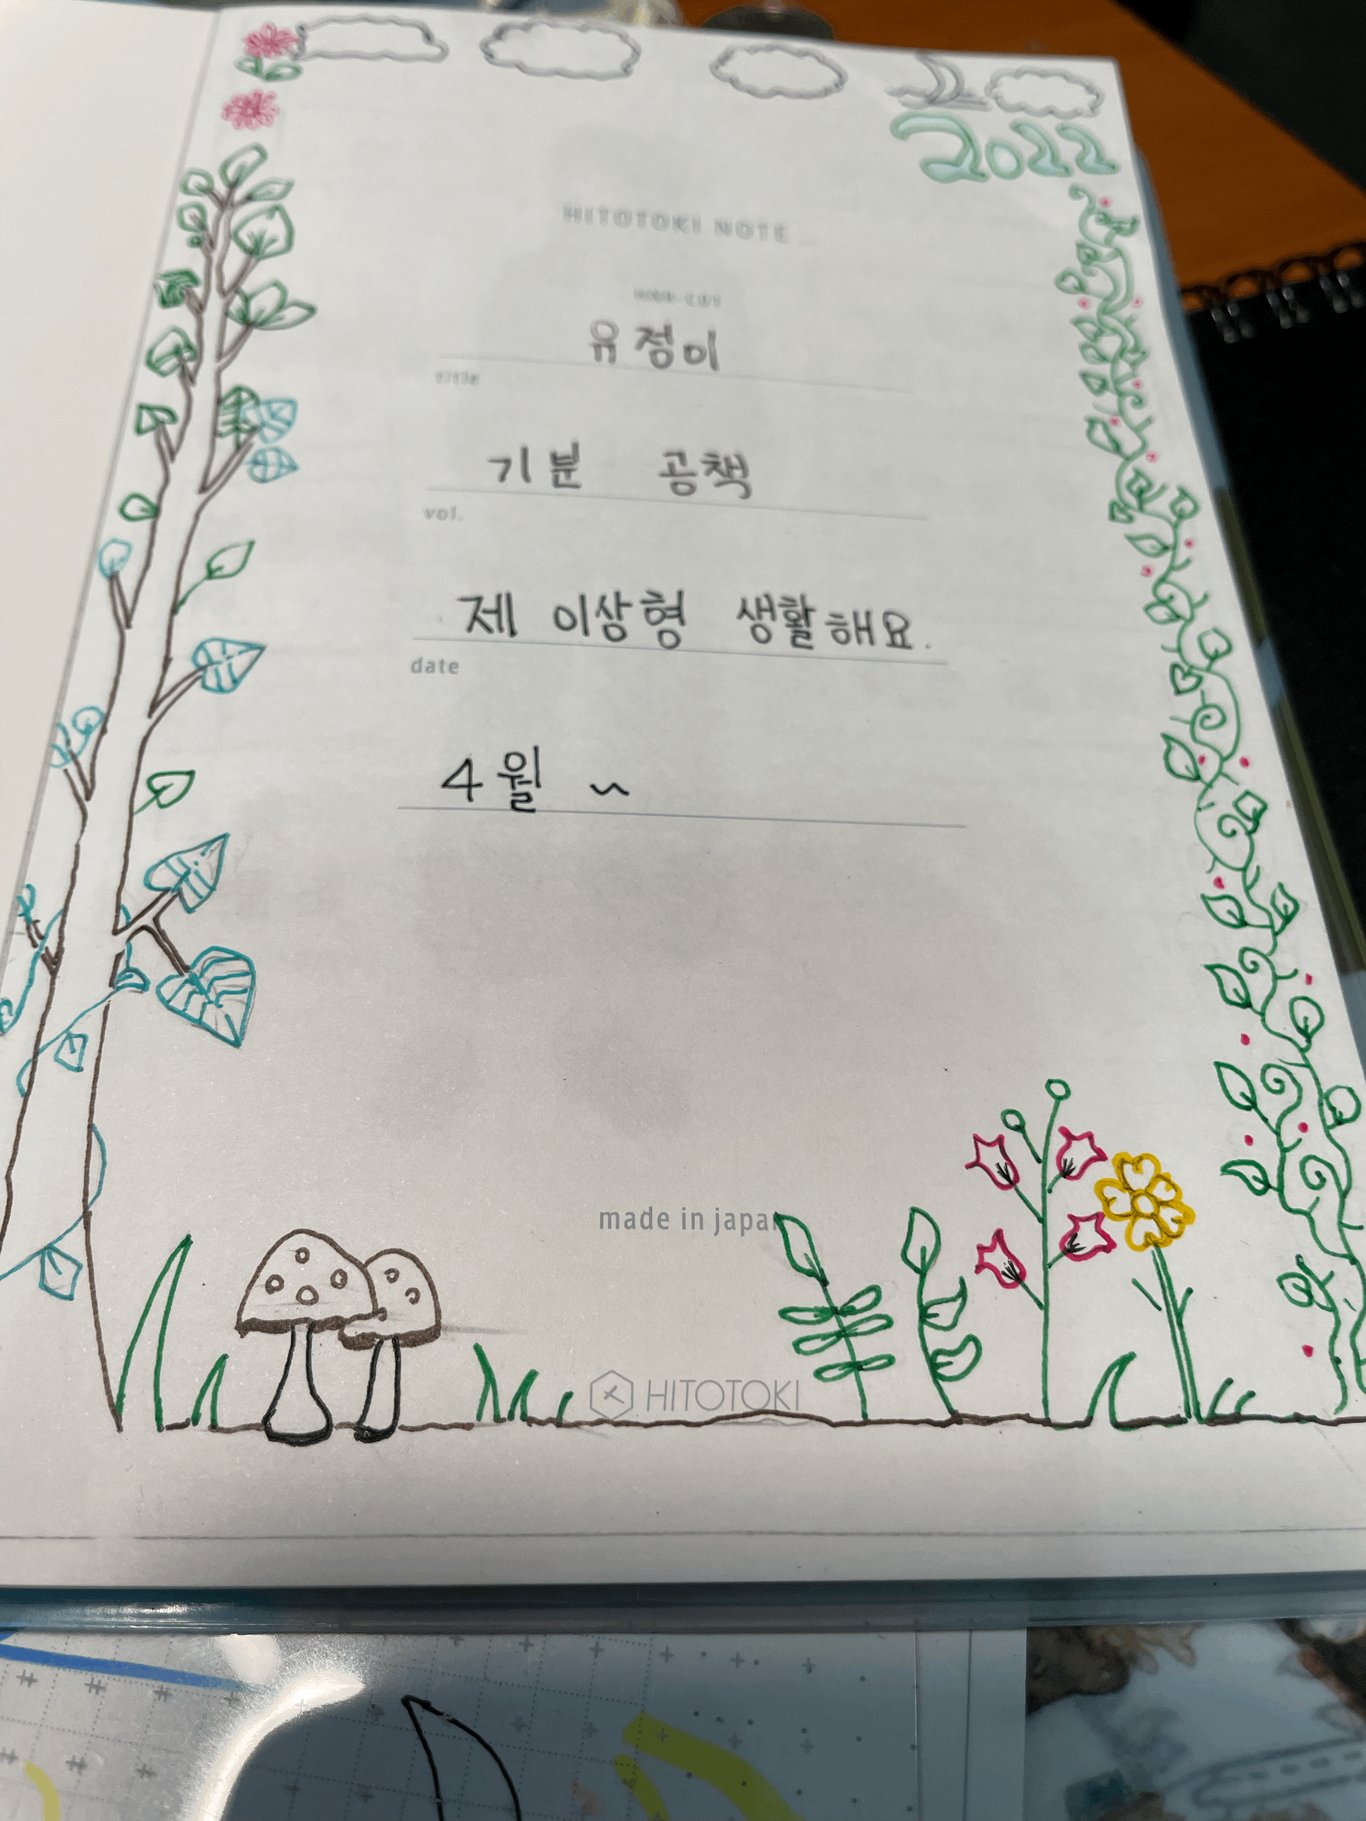 2022
HITOTOKI NOTE
유정이
title
기분 공책
vol.
제 이상형 생활해요.
date
4월 ~
made in japan
HITOTOKI